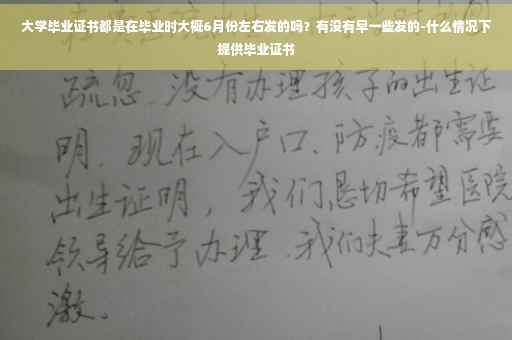 大学毕业证书都是在毕业时大概6月份左右发的吗？有没有早一些发的-什么情况下
提供毕业证书
疏忽、没有办理孩子的出生证
明、现在入户口、防疫都需要
出生证明，我们恳切希望医院
领导给予办理、我们夫妻万分感
激。